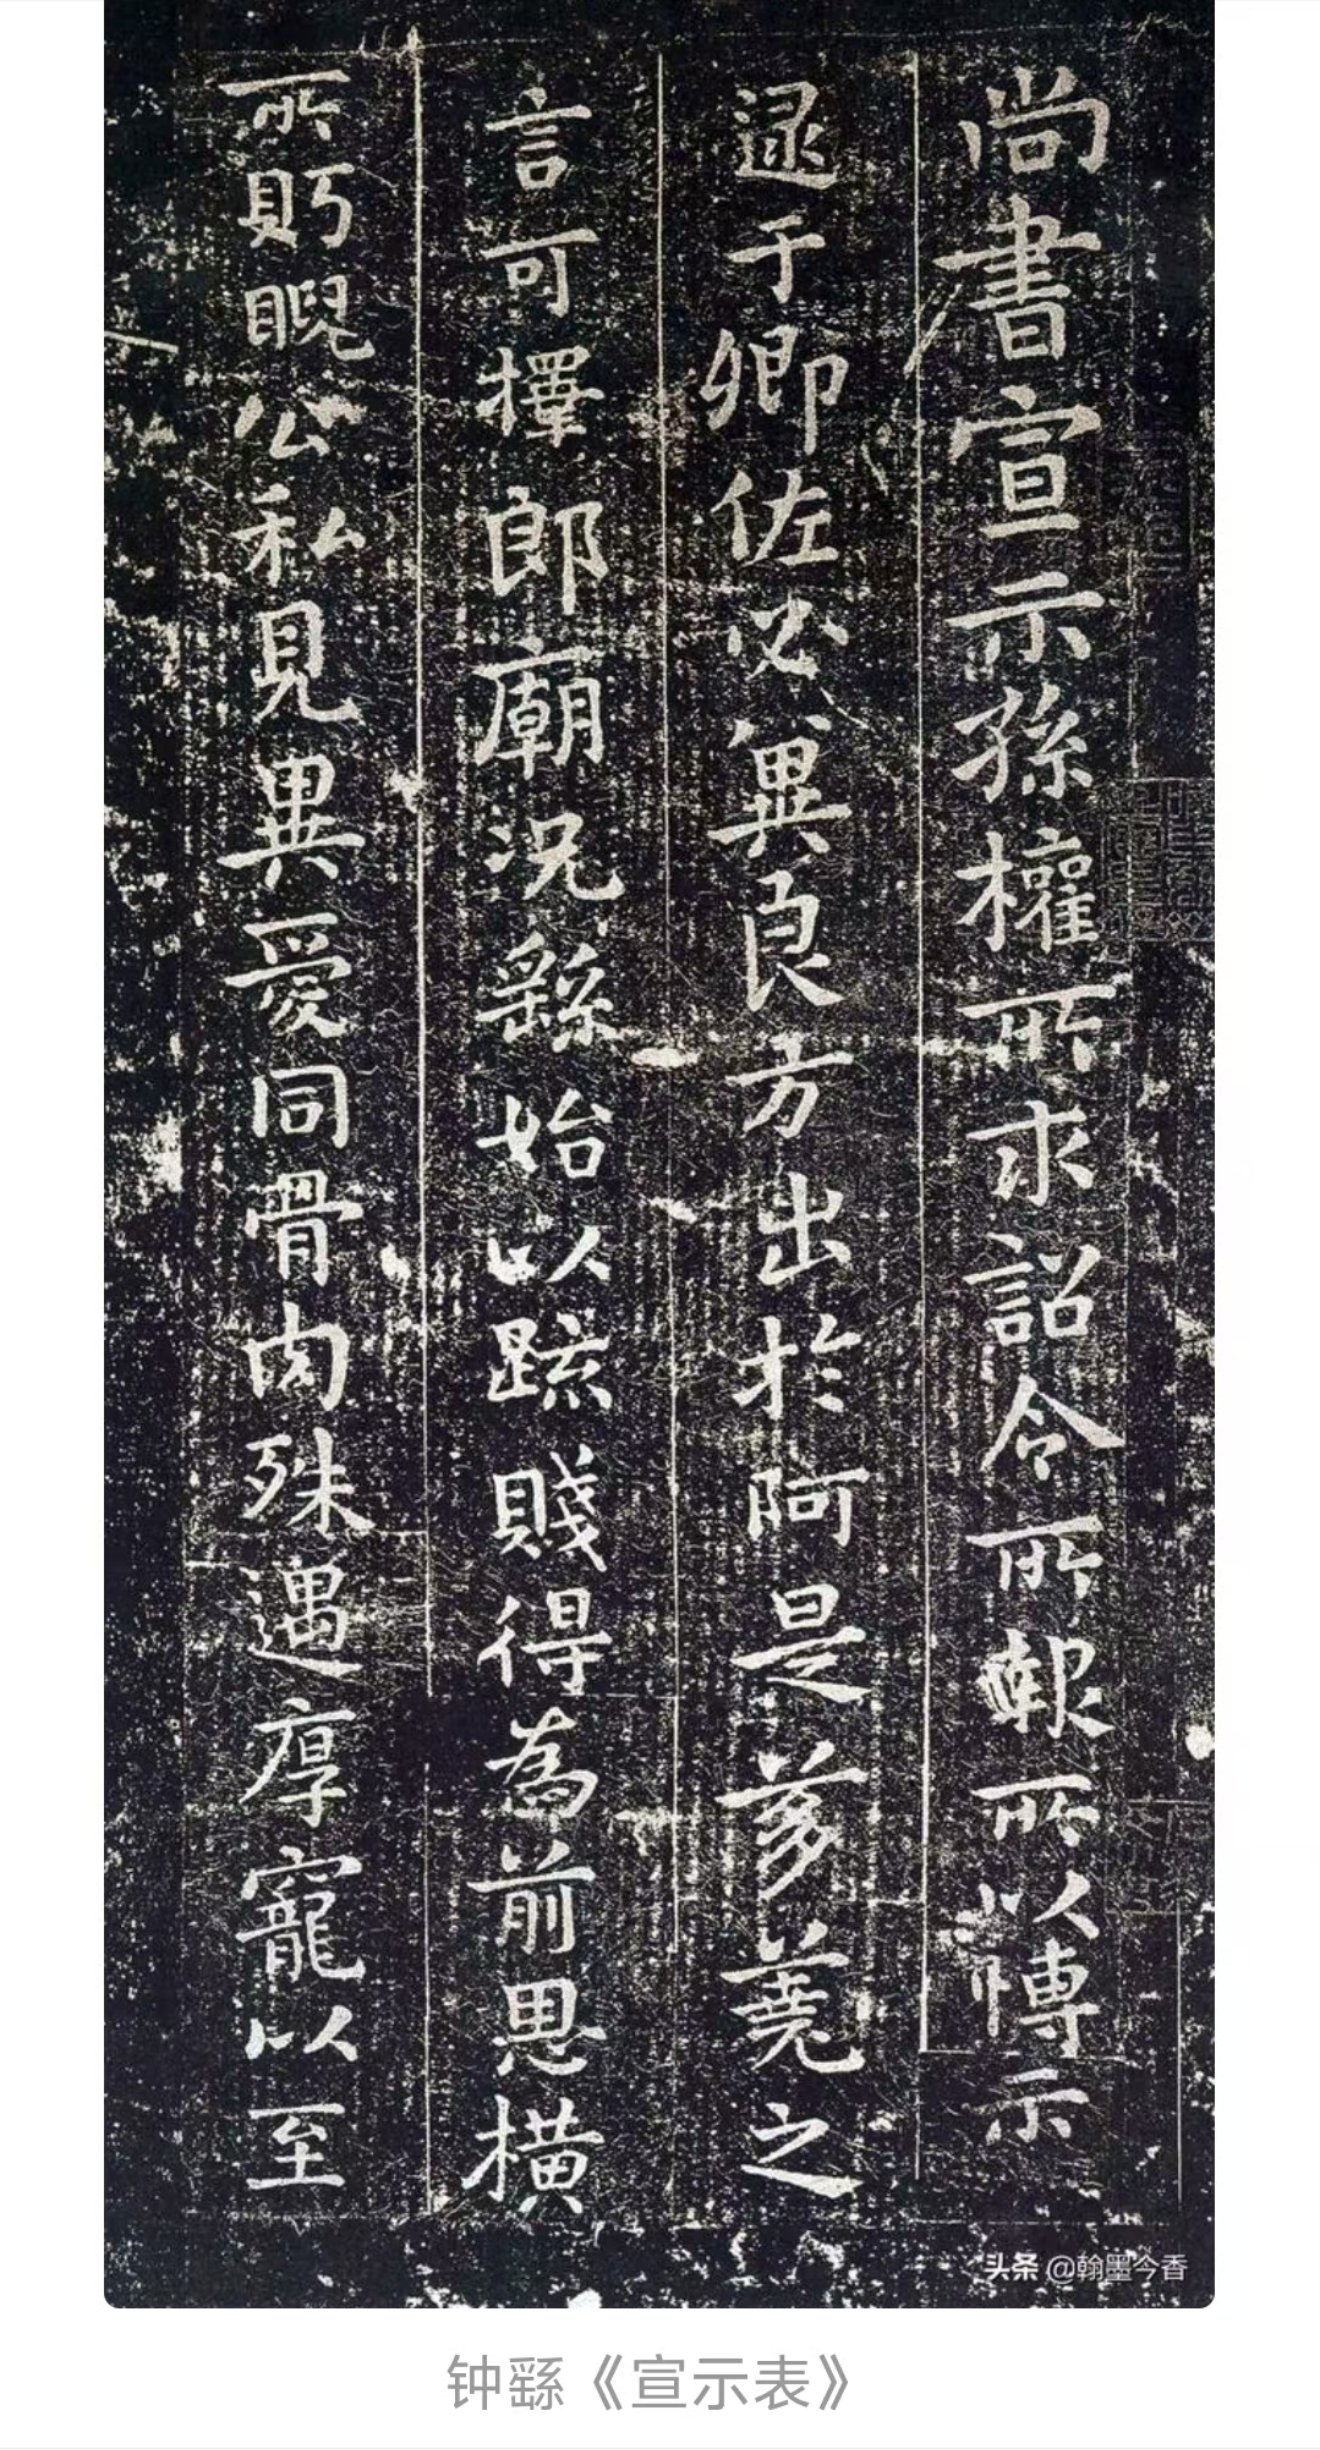 尚書宣示孫權所求詔令所報所以博示
逮于卿佐必冀良方出於阿是芻蕘之
言可擇郎廟況繇始以疏賤得為前恩橫
所眄睨公私見異愛同骨肉殊遇厚寵以至
头条 @翰墨今香
钟繇《宣示表》